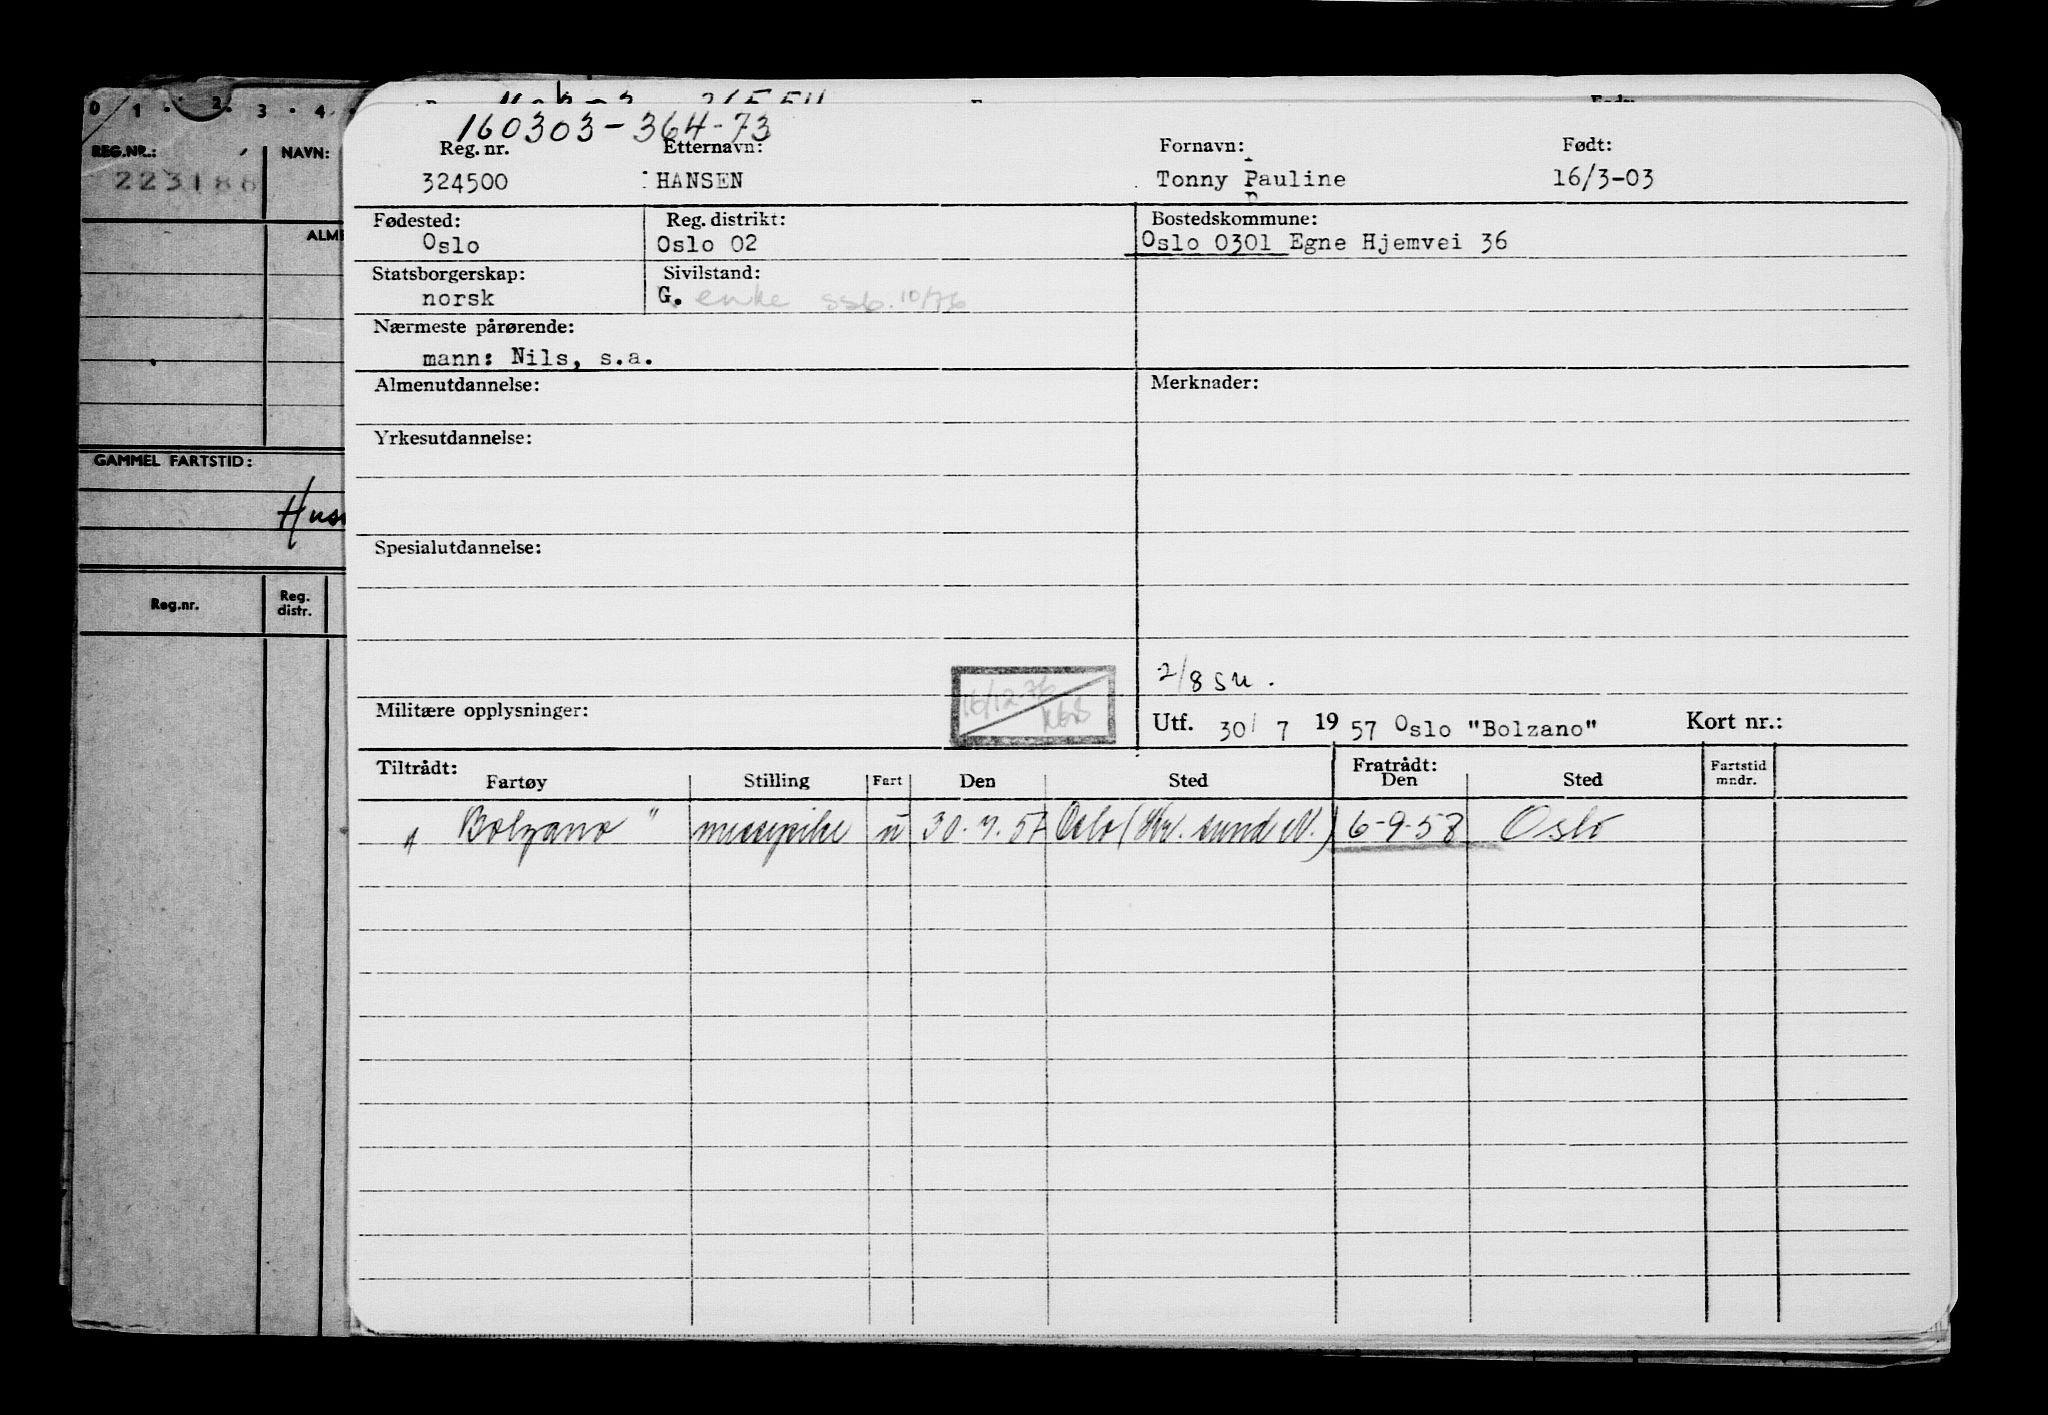 0 1 2 3 4
REG.NR.:
223186
NAVN:
ALME
GAMMEL FARTSTID:
Hus
Reg.nr.
Reg. distr.
160303-364-73
Reg. nr. Etternavn: Fornavn: Født:
324500 HANSEN Tonny Pauline 16/3-03
Fødested: Reg. distrikt: Bostedskommune:
Oslo Oslo 02 Oslo 0301 Egne Hjemvei 36
Statsborgerskap: Sivilstand:
norsk G. enke ssb. 10/76
Nærmeste pårørende:
mann: Nils, s.a.
Almenutdannelse: Merknader:
Yrkesutdannelse:
Spesialutdannelse:
2/8 su.
16/12-76
Militære opplysninger:
Utf. 30/ 7 19 57 Oslo "Bolzano" Kort nr.:
Tiltrådt: Fratrådt:
Fartøy Stilling Fart Den Sted Den Sted Fartstid mndr.
"Bolzano" messepike u 30.7.57 Oslo (Kr. sund N.) 6-9-58 Oslo